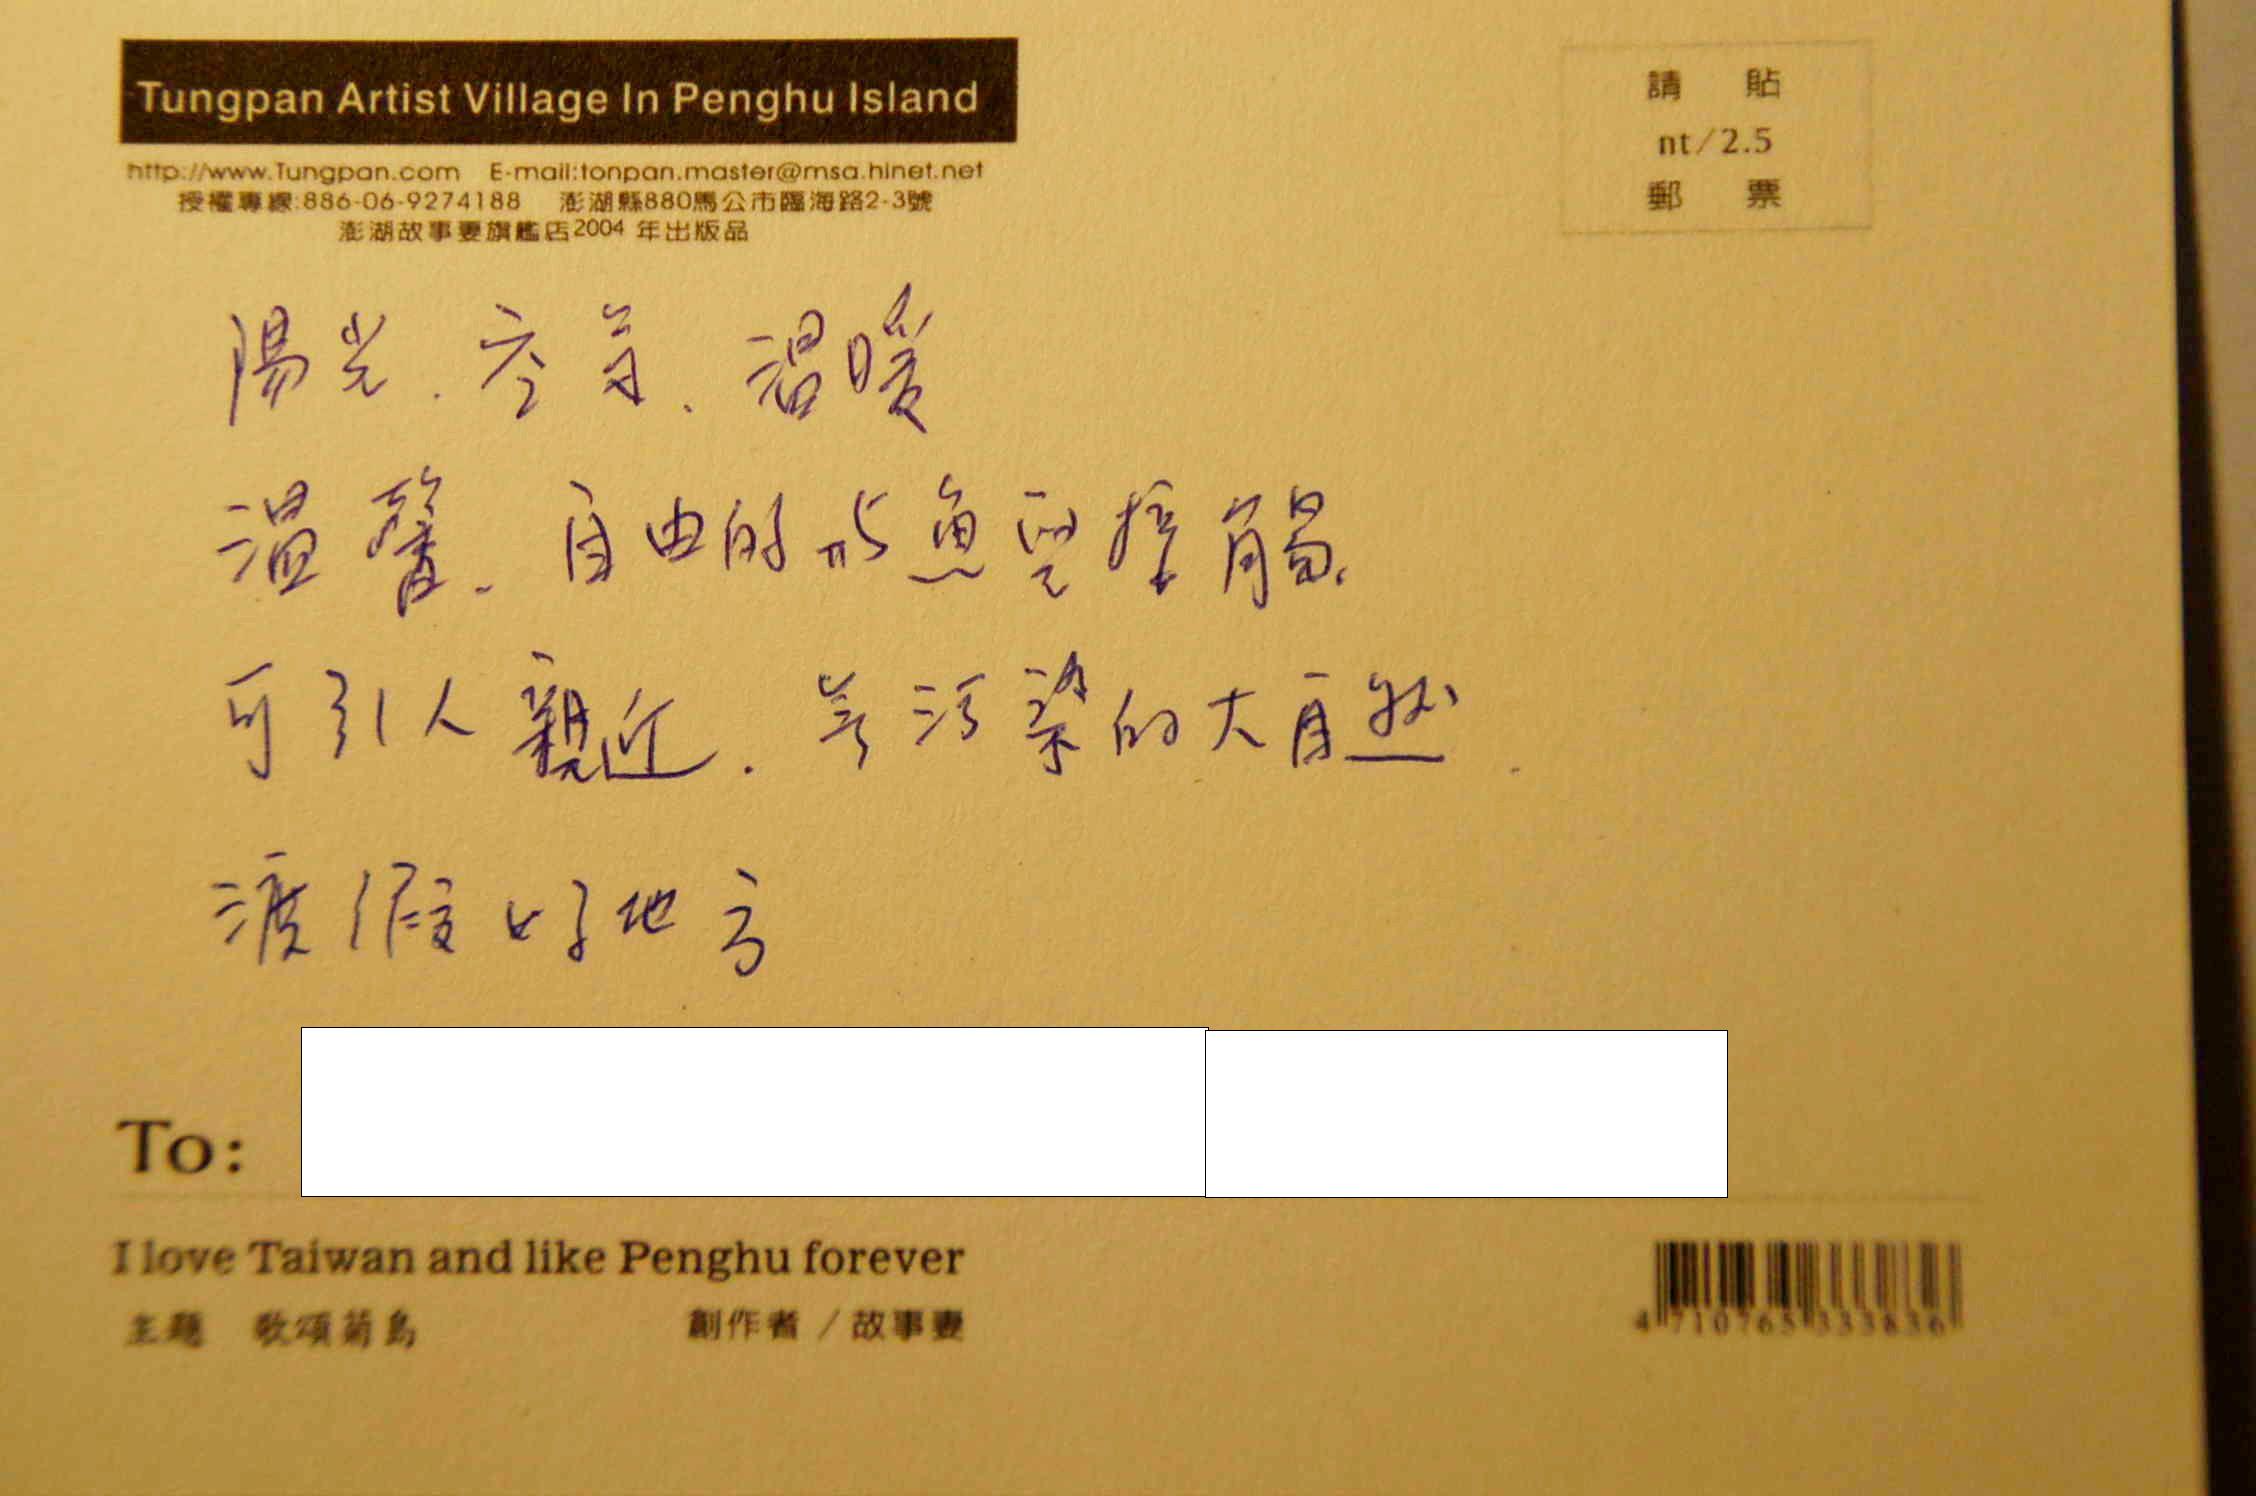 Tungpan Artist Village In Penghu Island
http://www.Tungpan.com E-mail:tonpan.master@msa.hinet.net
授權專線:886-06-9274188 澎湖縣880馬公市臨海路2-3號
澎湖故事妻旗艦店2004 年出版品
請 貼
nt/2.5
郵 票
陽光.空氣.溫暖
溫馨.自由的 魚 接觸.
可引人親近.無污染的大自然.
渡假好地方
To:
I love Taiwan and like Penghu forever
主題 歌頌菊島 創作者/故事妻
4 710765 333836